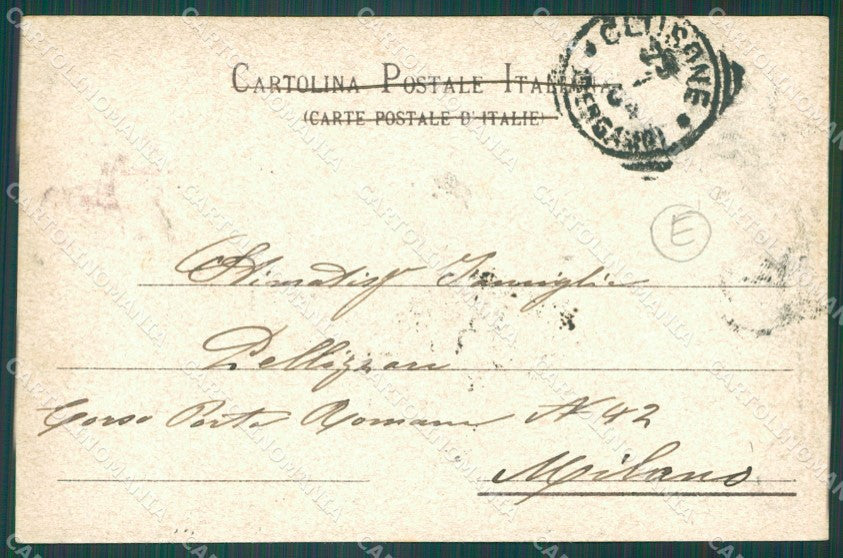 CARTOLINA POSTALE ITALIANA
(CARTE POSTALE D'ITALIE)
CLUSONE
(BERGAMO)
E
Stimatisf Famiglia
Pellizzari
Corso Porta Romana N 42
Milano
CARTOLINOMANIA